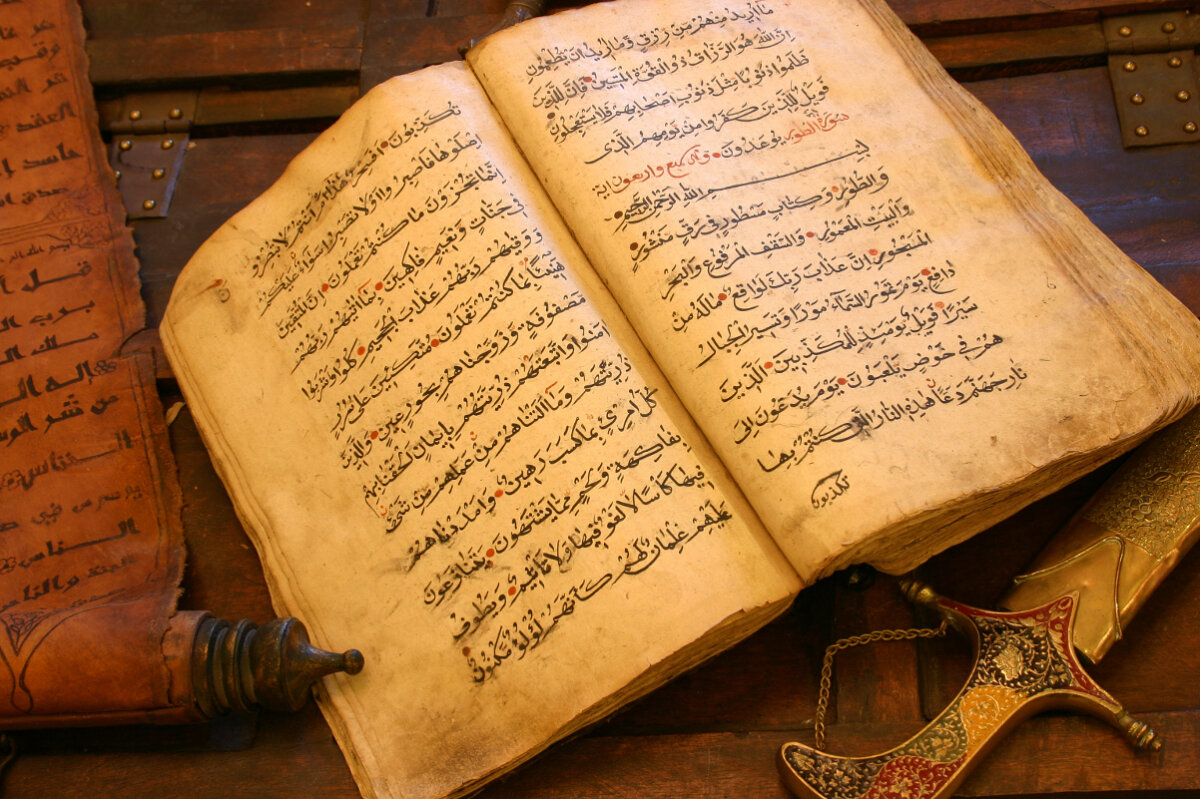 ما اريد منهم من رزق وما اريد ان يطعمون
ان الله هو الرزاق ذو القوة المتين فان للذين
ظلموا ذنوبا مثل ذنوب اصحابهم فلا يستعجلون
فويل للذين كفروا من يومهم الذي
يوعدون سورة الطور وهي سبع واربعون اية
بسم الله الرحمن الرحيم
والطور وكتاب مسطور في رق منشور
والبيت المعمور والسقف المرفوع والبحر
المسجور ان عذاب ربك لواقع ماله من
دافع يوم تمور السماء مورا وتسير الجبال
سيرا فويل يومئذ للمكذبين الذين
هم في خوض يلعبون يوم يدعون الى
نار جهنم دعا هذه النار التي كنتم بها
تكذبون
تكذبون افسحر هذا ام انتم لا تبصرون
اصلوها فاصبروا او لا تصبروا سواء عليكم
انما تجزون ما كنتم تعملون ان المتقين
في جنات ونعيم فاكهين بما اتاهم ربهم
ووقاهم ربهم عذاب الجحيم كلوا واشربوا
هنيئا بما كنتم تعملون متكئين على سرر
مصفوفة وزوجناهم بحور عين والذين
امنوا واتبعتهم ذريتهم بايمان الحقنا بهم
ذريتهم وما التناهم من عملهم من شيء
كل امرئ بما كسب رهين وامددناهم
بفاكهة ولحم مما يشتهون يتنازعون
فيها كأسا لا لغو فيها ولا تأثيم ويطوف
عليهم غلمان لهم كأنهم لؤلؤ مكنون
العقد
حاسد
قل
برب
ملك
إله
من شر
الناس
في
الناس
والناس